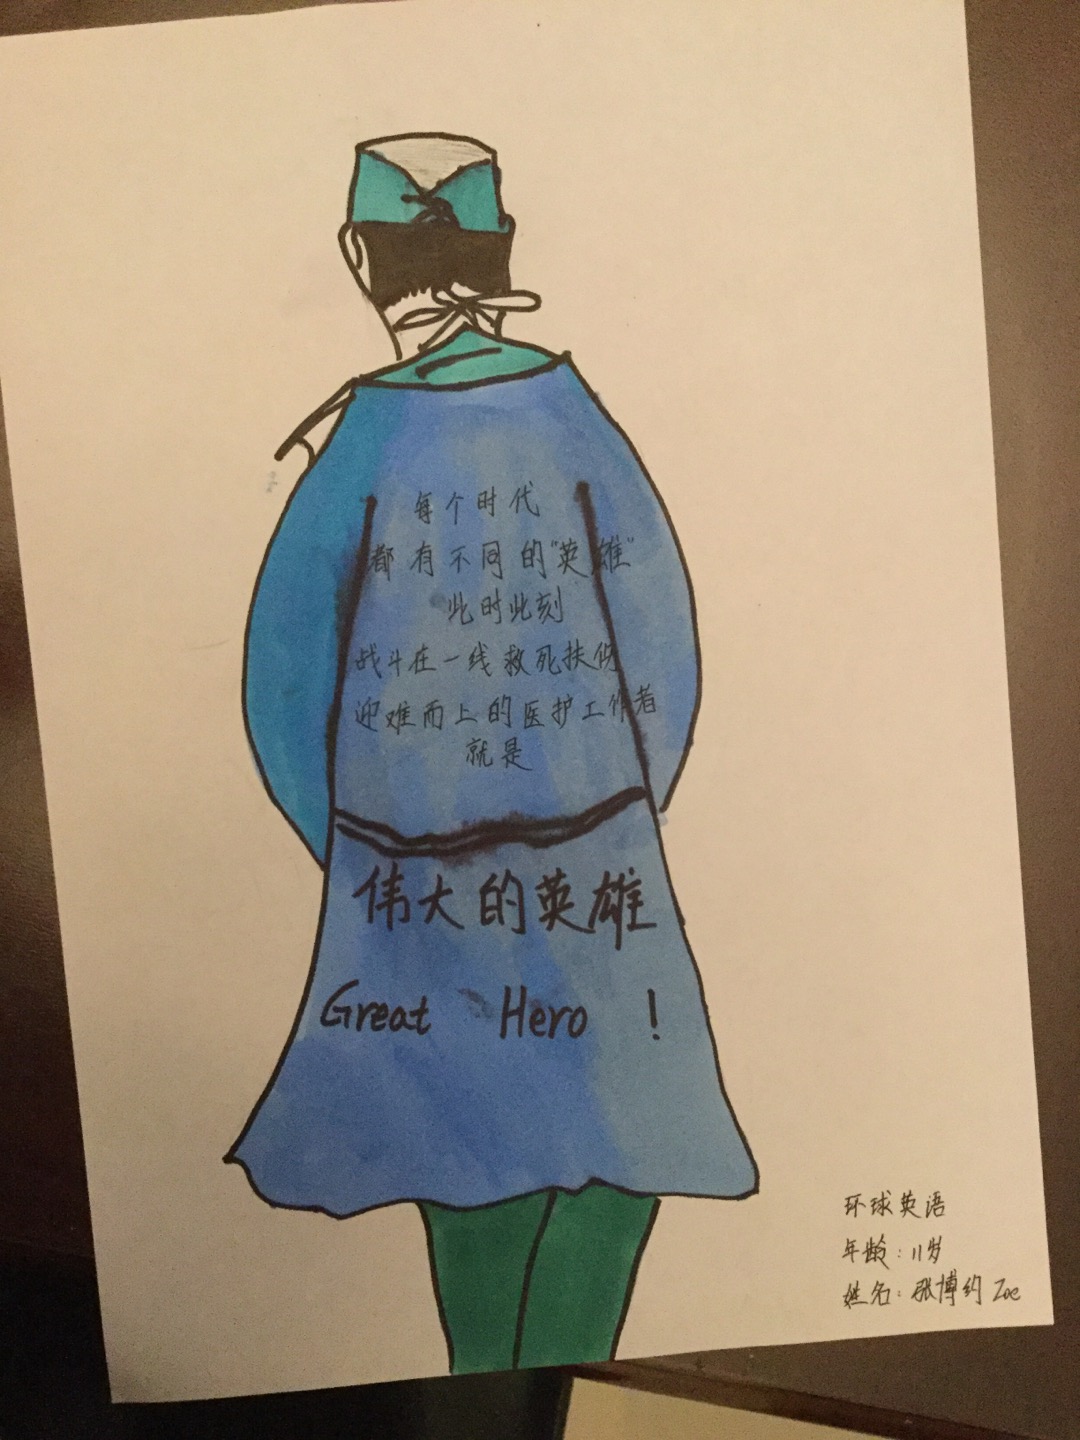 每个时代
都有不同的"英雄"
此时此刻
战斗在一线救死扶伤
迎难而上的医护工作者
就是
伟大的英雄
Great Hero !
环球英语
年龄：11岁
姓名：张博约 Zoe